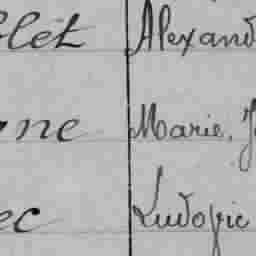 flet Alexand
gne Marie, J
ec Ludovic